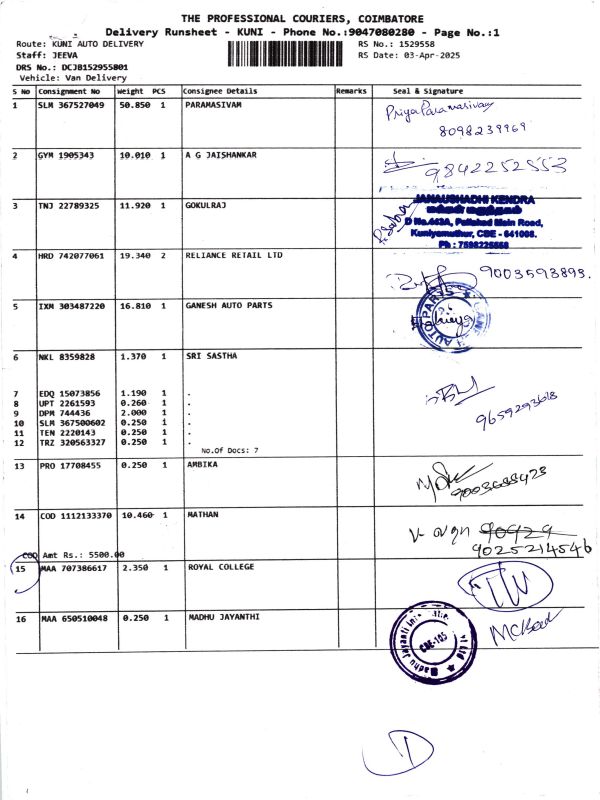 THE PROFESSIONAL COURIERS, COIMBATORE
Delivery Runsheet - KUNI - Phone No.:9047080280 - Page No.:1
Route: KUNI AUTO DELIVERY RS No.: 1529558
Staff: JEEVA RS Date: 03-Apr-2025
DRS No.: DCJB152955801
Vehicle: Van Delivery
S No Consignment No Weight PCS Consignee Details Remarks Seal & Signature
1 SLM 367527049 50.850 1 PARAMASIVAM Priya Paramasivam
8098239969
2 GYM 1905343 10.010 1 A G JAISHANKAR 9842252553
JANAUSHADHI KENDRA
மக்கள் மருந்தகம்
3 TNJ 22789325 11.920 1 GOKULRAJ D No.443A, Palakad Main Road,
Kuniyamuthur, CBE - 641008.
Ph : 7598225568
4 HRD 742077061 19.340 2 RELIANCE RETAIL LTD 9003593893.
5 IXM 303487220 16.810 1 GANESH AUTO PARTS AUTO PARTS
6 NKL 8359828 1.370 1 SRI SASTHA
7 EDQ 15073856 1.190 1 .
8 UPT 2261593 0.260 1 .
9 DPM 744436 2.000 1 . 9659293618
10 SLM 367500602 0.250 1 .
11 TEN 2220143 0.250 1 .
12 TRZ 320563327 0.250 1 .
No.Of Docs: 7
13 PRO 17708455 0.250 1 AMBIKA
14 COD 1112133370 10.460 1 MATHAN 90929
9025214546
COD Amt Rs.: 5500.00
15 MAA 707386617 2.350 1 ROYAL COLLEGE
16 MAA 650510048 0.250 1 MADHU JAYANTHI
Madhu Jayanti International Pvt Ltd
CBE-105